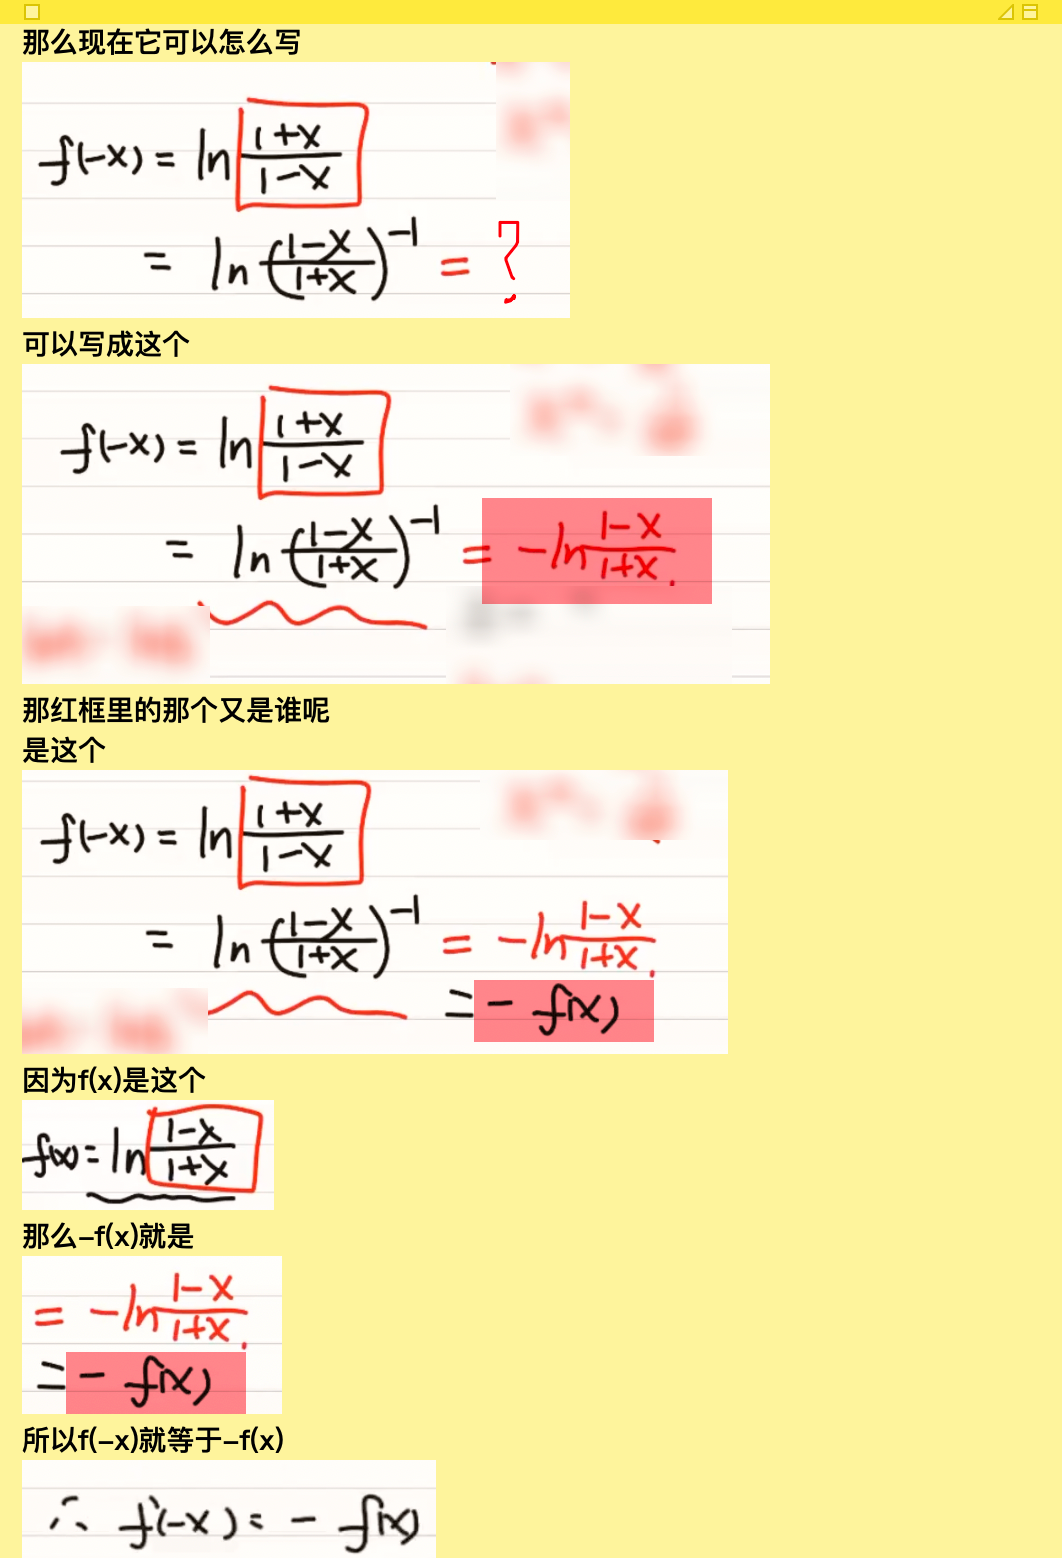 那么现在它可以怎么写
f(-x) = ln (1+x)/(1-x)
= ln ((1-x)/(1+x))^-1 = ?
可以写成这个
f(-x) = ln (1+x)/(1-x)
= ln ((1-x)/(1+x))^-1 = -ln (1-x)/(1+x).
那红框里的那个又是谁呢
是这个
f(-x) = ln (1+x)/(1-x)
= ln ((1-x)/(1+x))^-1 = -ln (1-x)/(1+x).
= - f(x)
因为f(x)是这个
f(x) = ln (1-x)/(1+x)
那么-f(x)就是
= -ln (1-x)/(1+x).
= - f(x)
所以f(-x)就等于-f(x)
∴ f(-x) = - f(x)